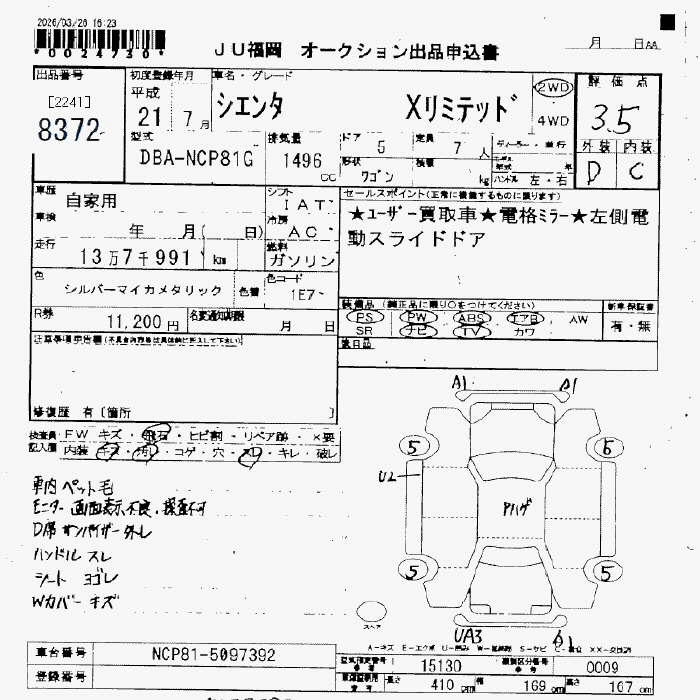 2026/03/26 16:23
*0024730*
JU福岡 オークション出品申込書
月 日AA
出品番号
[2241]
8372
初度登録年月
平成
21 7月
車名・グレード
シエンタ Xリミテッド
2WD
4WD
評価点
3.5
外装 内装
D C
型式
DBA-NCP81G
排気量
1496
cc
ドア
5
定員
7人
形状
ワゴン
積載
kg
ディーラー・並行
ハンドル 左・右
車歴
自家用
シフト
IAT
車検
年 月( 日)
冷房
AC
走行
13万7千991 km
燃料
ガソリン
色
シルバーマイカメタリック
色替
色コード
1E7
R券
11,200円
名変通知期限
月 日
セールスポイント(正常に機能するものに限ります)
★ユーザー買取車★電格ミラー★左側電
動スライドドア
装備品(純正品に限り○をつけてください)
PS PW ABS エアB AW
SR ナビ TV カワ
新車保証書
有・無
修復歴 有〔箇所 〕
検査員 FW キズ・飛石・ヒビ割・リペア跡・×要
記入欄 内装 キズ・汚れ・コゲ・穴・スレ・キレ・破レ
車内ペット毛
モニター 画面表示不良、探査不可
D席サンバイザー外レ
ハンドルスレ
シート ヨゴレ
Wカバー キズ
A1 A1
5 6
U2
Pハゲ
5 5
スペア
UA3 A1
車台番号
NCP81-5097392
登録番号
型式指定番号
15130
類別区分番号
0009
長さ 410cm 幅 169cm 高さ 167cm